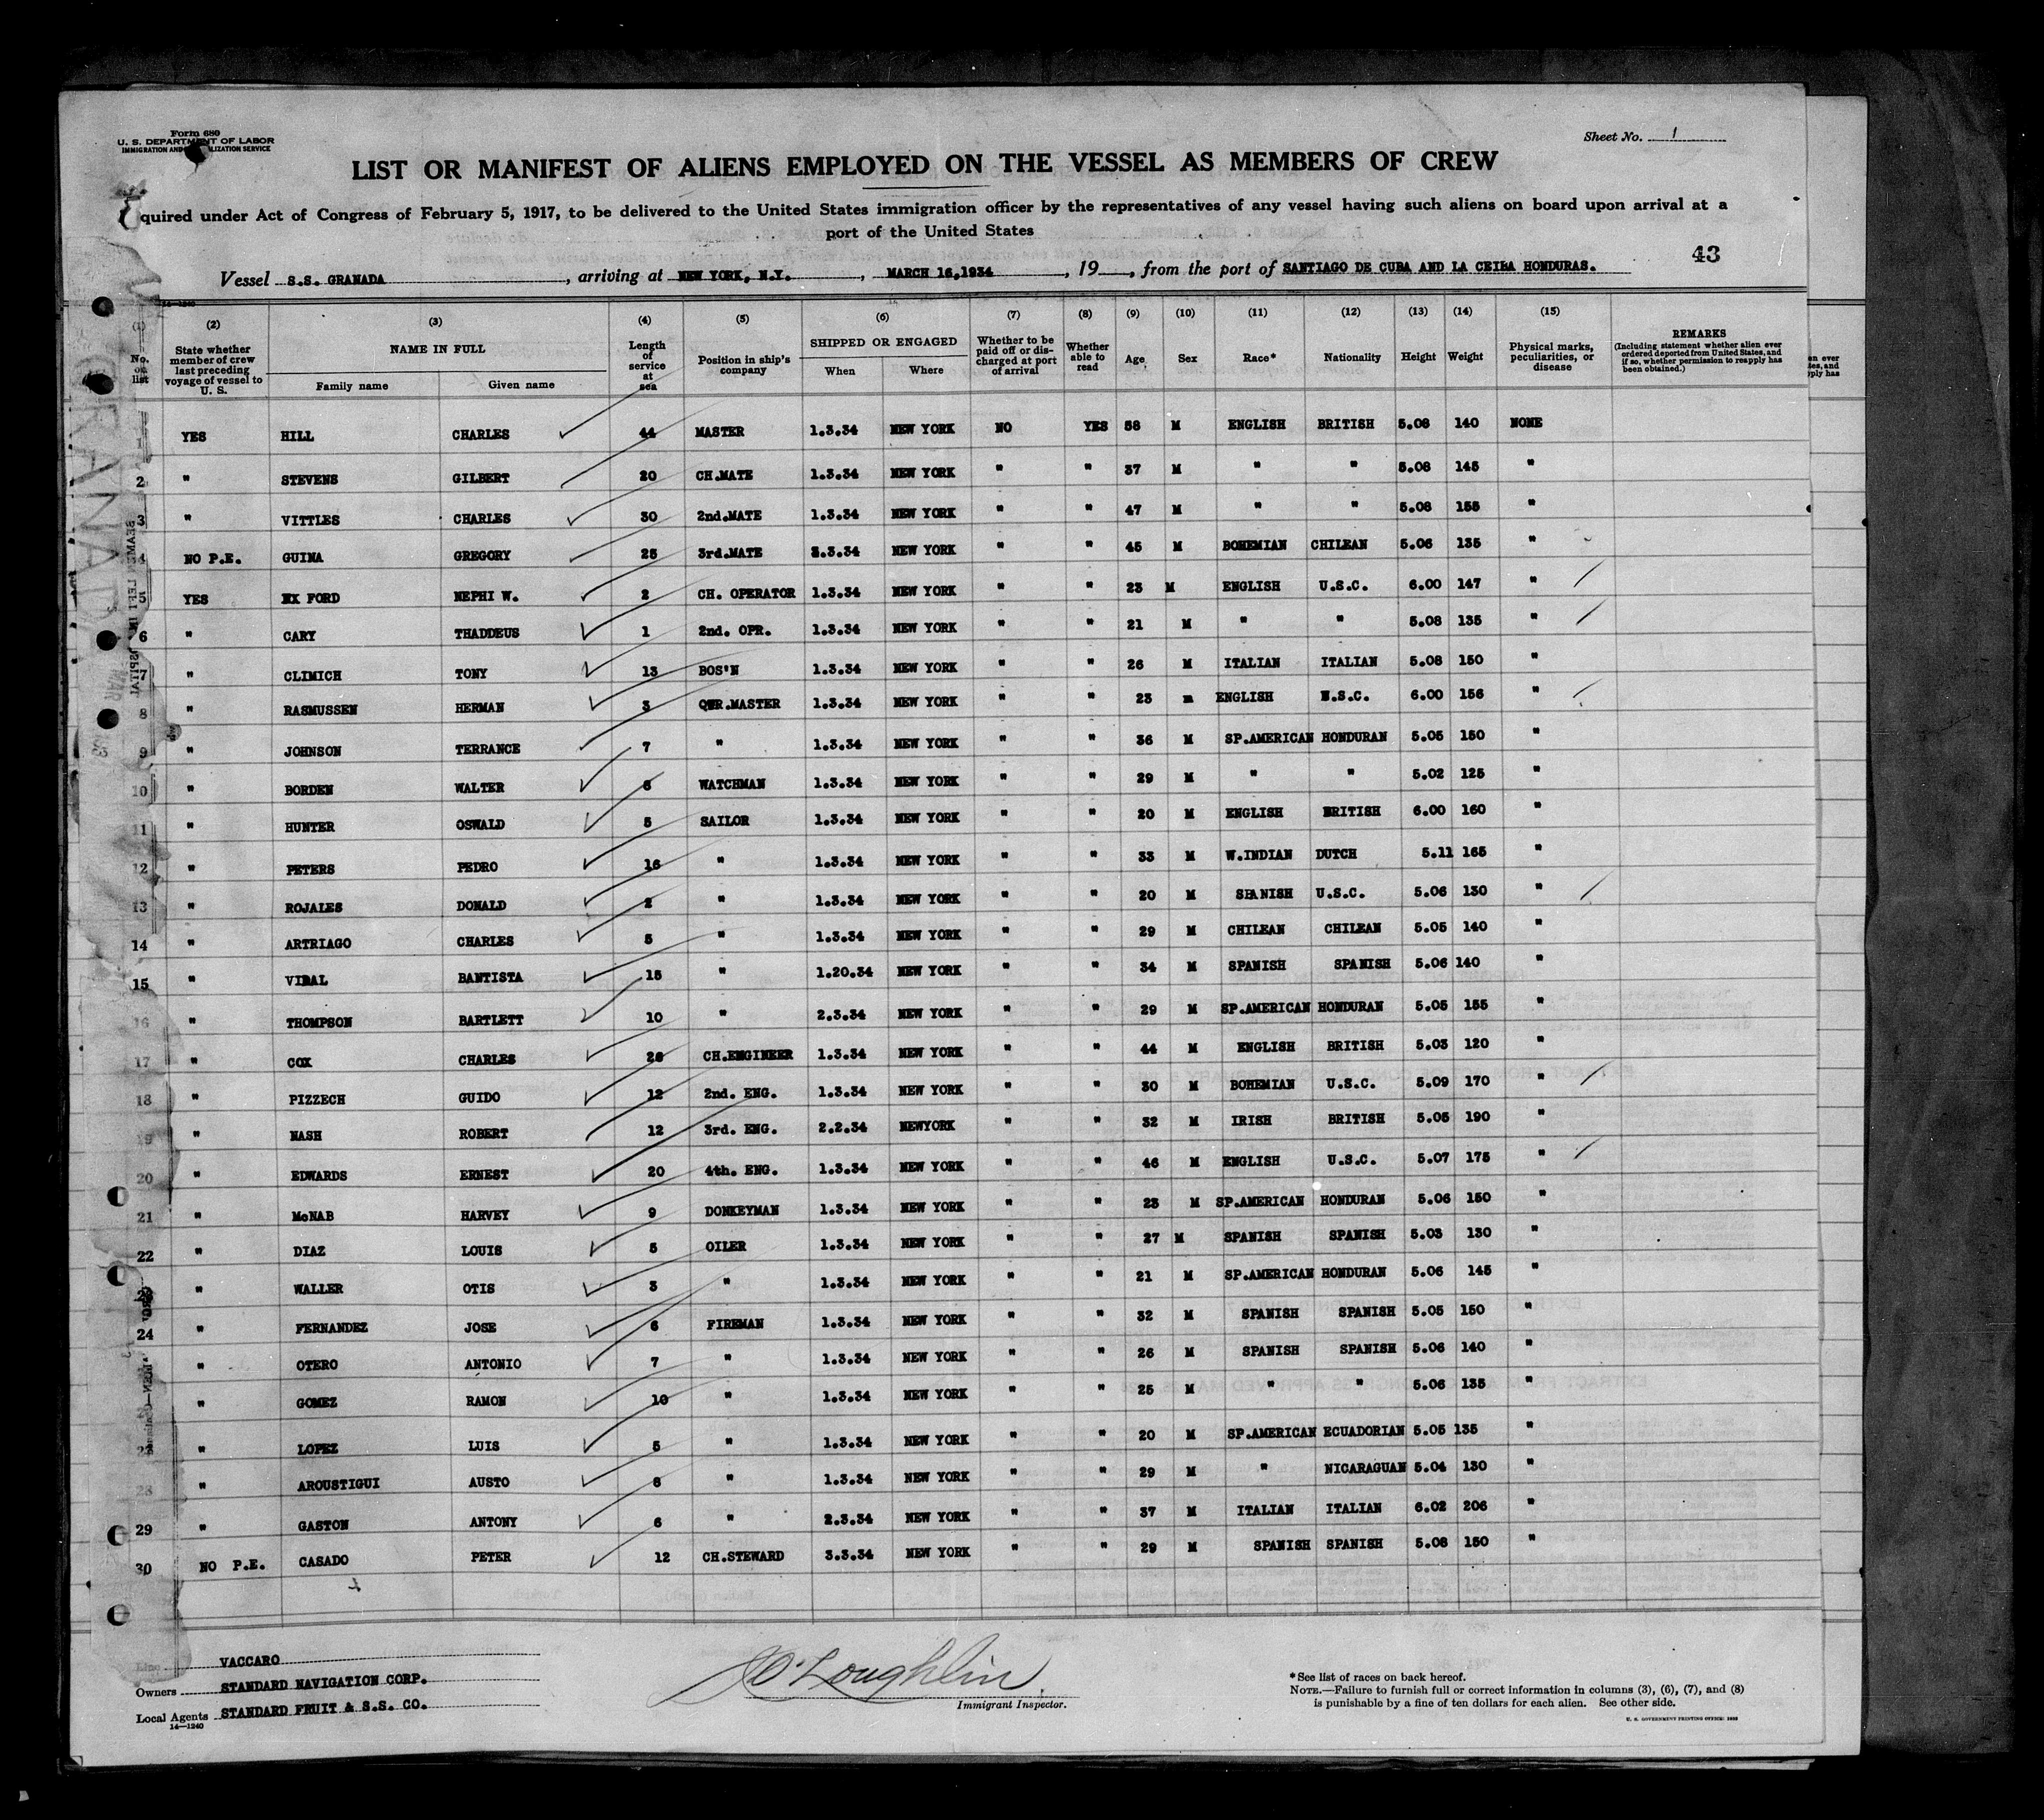 Form 680
U. S. DEPARTMENT OF LABOR
IMMIGRATION AND NATURALIZATION SERVICE
Sheet No. 1
LIST OR MANIFEST OF ALIENS EMPLOYED ON THE VESSEL AS MEMBERS OF CREW
quired under Act of Congress of February 5, 1917, to be delivered to the United States immigration officer by the representatives of any vessel having such aliens on board upon arrival at a
port of the United States
43
Vessel S.S. GRANADA, arriving at NEW YORK, N.Y., MARCH 16,1934, 19, from the port of SANTIAGO DE CUBA AND LA CEIBA HONDURAS.
(1) No. on list (2) State whether member of crew last preceding voyage of vessel to U. S. (3) NAME IN FULL Family name Given name (4) Length of service at sea (5) Position in ship's company (6) SHIPPED OR ENGAGED When Where (7) Whether to be paid off or discharged at port of arrival (8) Whether able to read (9) Age (10) Sex (11) Race* (12) Nationality (13) Height (14) Weight (15) Physical marks, peculiarities, or disease REMARKS (Including statement whether alien ever ordered deported from United States, and if so, whether permission to reapply has been obtained.)
1 YES HILL CHARLES 44 MASTER 1.3.34 NEW YORK NO YES 58 M ENGLISH BRITISH 5.08 140 NONE
2 " STEVENS GILBERT 20 CH.MATE 1.3.34 NEW YORK " " 37 M " " 5.08 145 "
3 " VITTLES CHARLES 30 2nd.MATE 1.3.34 NEW YORK " " 47 M " " 5.08 155 "
4 NO P.E. GUINA GREGORY 25 3rd.MATE 3.3.34 NEW YORK " " 45 M BOHEMIAN CHILEAN 5.06 135 "
5 YES FORD NEPHI W. 2 CH. OPERATOR 1.3.34 NEW YORK " " 23 M ENGLISH U.S.C. 6.00 147 "
6 " CARY THADDEUS 1 2nd. OPR. 1.3.34 NEW YORK " " 21 M " " 5.08 135 "
7 " CLIMICH TONY 13 BOS'N 1.3.34 NEW YORK " " 26 M ITALIAN ITALIAN 5.08 150 "
8 " RASMUSSEN HERMAN 3 QWR.MASTER 1.3.34 NEW YORK " " 23 m ENGLISH U.S.C. 6.00 156 "
9 " JOHNSON TERRANCE 7 " 1.3.34 NEW YORK " " 36 M SP.AMERICAN HONDURAN 5.05 150 "
10 " BORDEN WALTER 6 WATCHMAN 1.3.34 NEW YORK " " 29 M " " 5.02 125 "
11 " HUNTER OSWALD 5 SAILOR 1.3.34 NEW YORK " " 20 M ENGLISH BRITISH 6.00 160 "
12 " PETERS PEDRO 16 " 1.3.34 NEW YORK " " 33 M W.INDIAN DUTCH 5.11 165 "
13 " ROJALES DONALD 2 " 1.3.34 NEW YORK " " 20 M SPANISH U.S.C. 5.06 130 "
14 " ARTRIAGO CHARLES 5 " 1.3.34 NEW YORK " " 29 M CHILEAN CHILEAN 5.05 140 "
15 " VIDAL BANTISTA 15 " 1.20.34 NEW YORK " " 34 M SPANISH SPANISH 5.06 140 "
16 " THOMPSON BARTLETT 10 " 2.3.34 NEW YORK " " 29 M SP.AMERICAN HONDURAN 5.05 155 "
17 " COX CHARLES 26 CH.ENGINEER 1.3.34 NEW YORK " " 44 M ENGLISH BRITISH 5.03 120 "
18 " PIZZECH GUIDO 12 2nd. ENG. 1.3.34 NEW YORK " " 30 M BOHEMIAN U.S.C. 5.09 170 "
19 " NASH ROBERT 12 3rd. ENG. 2.2.34 NEWYORK " " 32 M IRISH BRITISH 5.05 190 "
20 " EDWARDS ERNEST 20 4th. ENG. 1.3.34 NEW YORK " " 46 M ENGLISH U.S.C. 5.07 175 "
21 " McNAB HARVEY 9 DONKEYMAN 1.3.34 NEW YORK " " 23 M SP.AMERICAN HONDURAN 5.06 150 "
22 " DIAZ LOUIS 5 OILER 1.3.34 NEW YORK " " 27 M SPANISH SPANISH 5.03 130 "
" WALLER OTIS 3 " 1.3.34 NEW YORK " " 21 M SP.AMERICAN HONDURAN 5.06 145 "
24 " FERNANDEZ JOSE 6 FIREMAN 1.3.34 NEW YORK " " 32 M SPANISH SPANISH 5.05 150 "
" OTERO ANTONIO 7 " 1.3.34 NEW YORK " " 26 M SPANISH SPANISH 5.06 140 "
" GOMEZ RAMON 10 " 1.3.34 NEW YORK " " 25 M " " 5.06 135 "
" LOPEZ LUIS 5 " 1.3.34 NEW YORK " " 20 M SP.AMERICAN ECUADORIAN 5.05 135 "
28 " AROUSTIGUI AUSTO 8 " 1.3.34 NEW YORK " " 29 M " NICARAGUAN 5.04 130 "
29 " GASTON ANTONY 6 " 2.3.34 NEW YORK " " 37 M ITALIAN ITALIAN 6.02 206 "
30 NO P.E. CASADO PETER 12 CH.STEWARD 3.3.34 NEW YORK " " 29 M SPANISH SPANISH 5.08 150 "
Line VACCARO
Owners STANDARD NAVIGATION CORP.
Local Agents STANDARD FRUIT & S.S. CO.
14—1240
O'Loughlin
Immigrant Inspector.
*See list of races on back hereof.
NOTE.—Failure to furnish full or correct information in columns (3), (6), (7), and (8)
is punishable by a fine of ten dollars for each alien. See other side.
U. S. GOVERNMENT PRINTING OFFICE: 1933